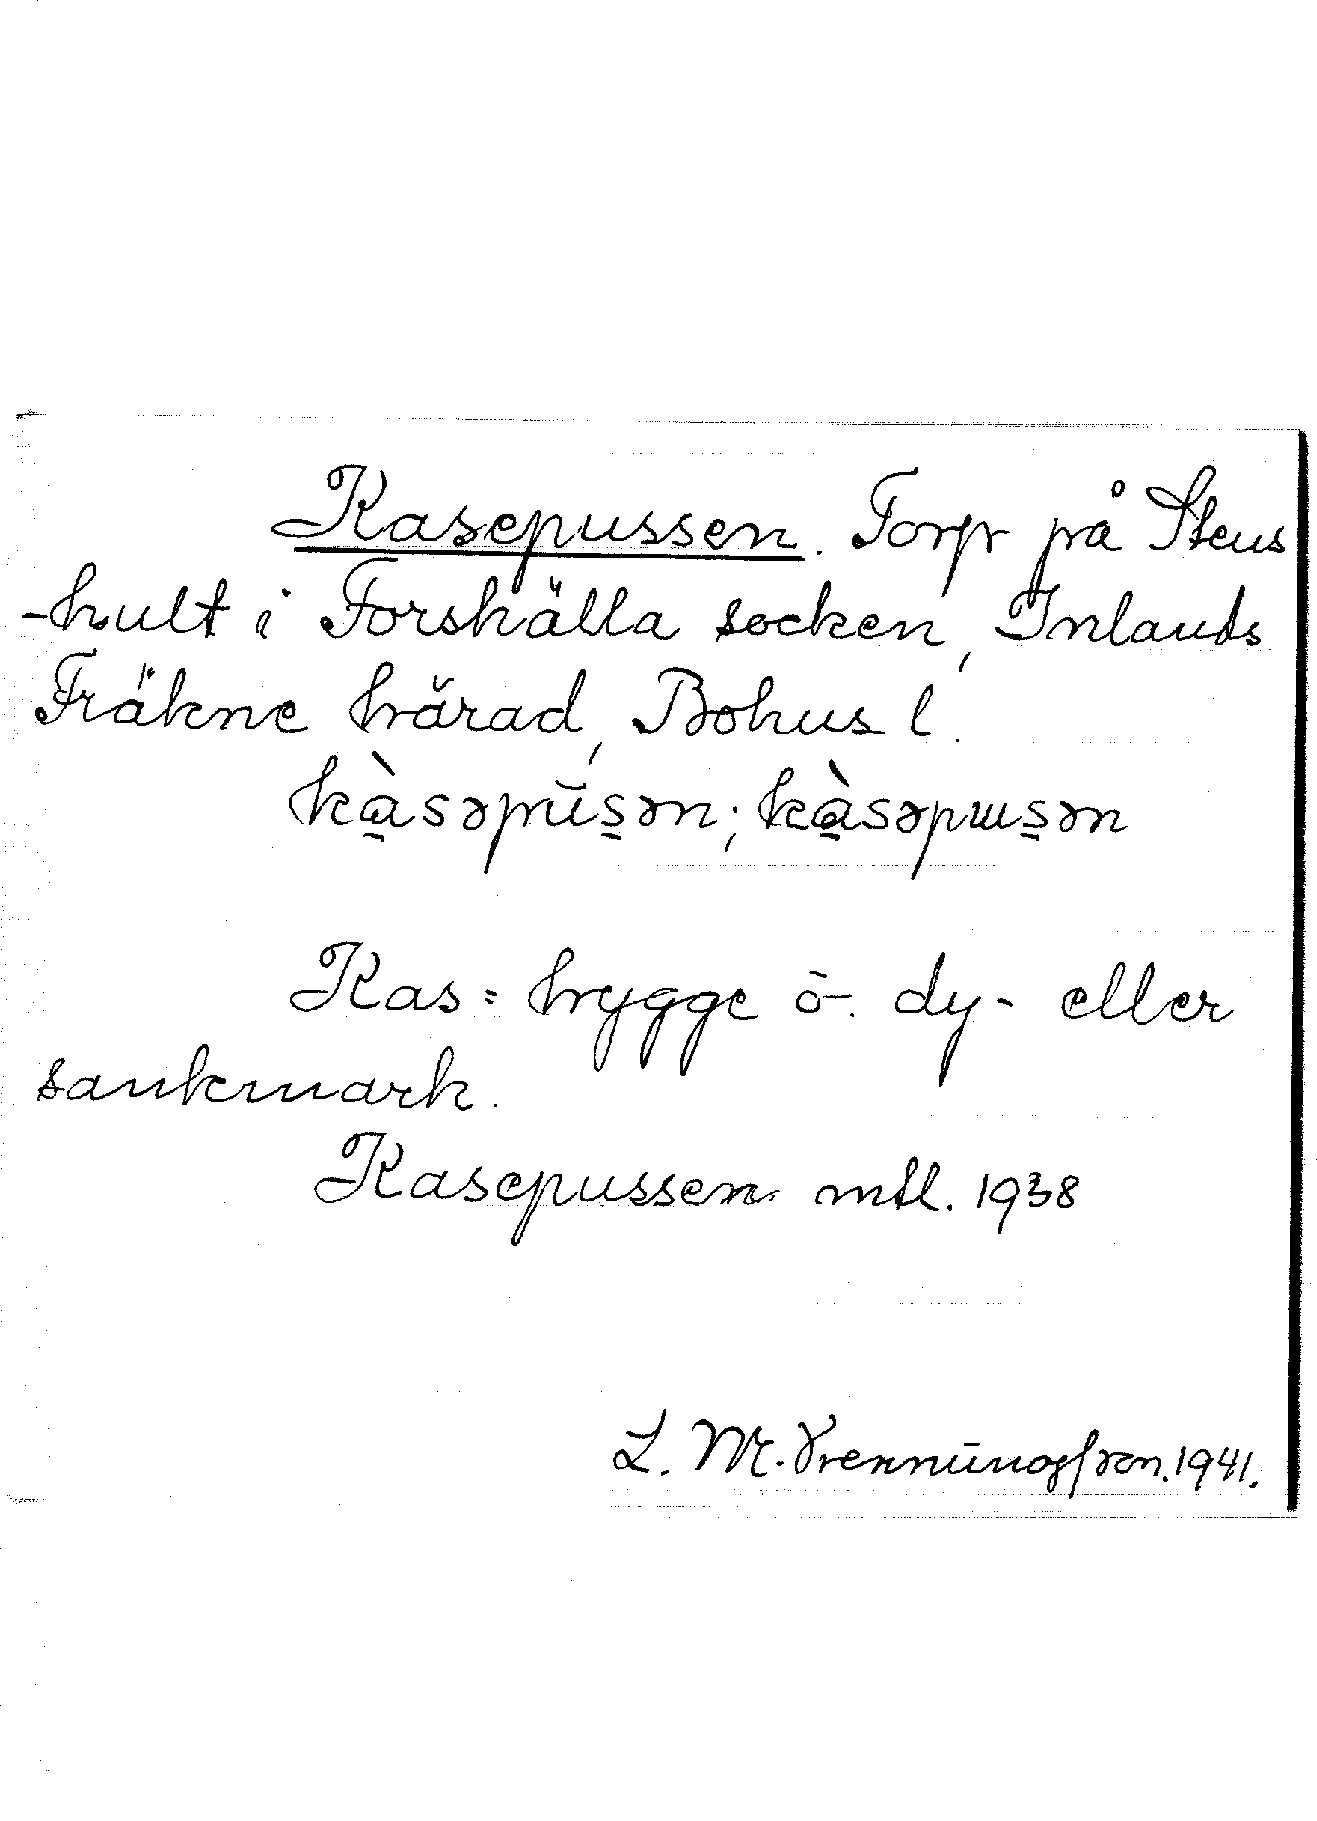 Kasepussen. Torp på Stens
-hult i Forshälla socken, Inlands
Fräkne härad, Bohus l.
kàsəpūsən; kàsəpɯsən
Kas = brygge ö. dy- eller
sankmark.
Kasepussen mtl. 1938
L. M. 1941.